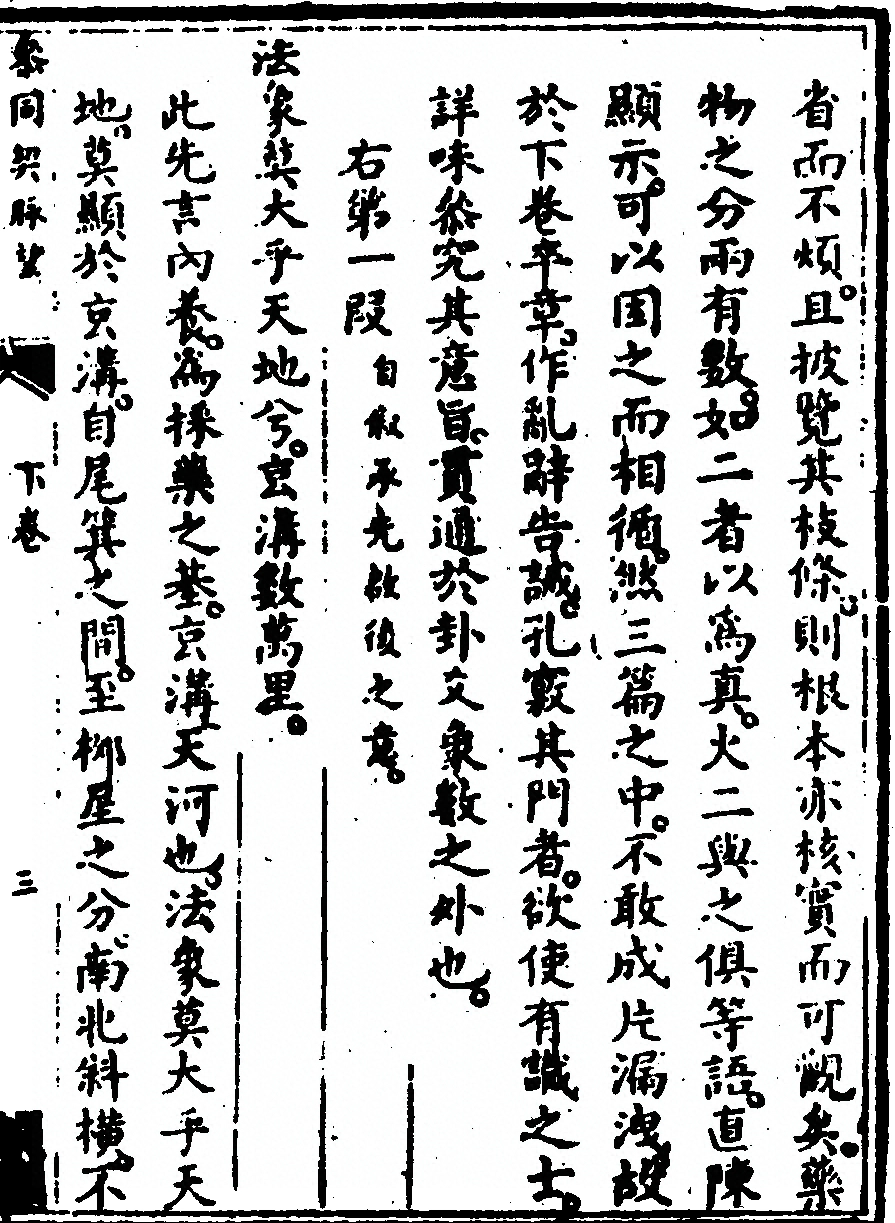 省而不煩。且披覽其枝條。則根本亦核實而可觀矣。藥
物之分兩有數。如二者以爲真。火二與之俱等語。直陳
顯示。可以因之而相循。然三篇之中。不敢成片漏洩。故
於下卷卒章。作亂辭告誡。孔竅其門者。欲使有識之士。
詳味參究其意旨。貫通於卦爻象數之外也。
右第一段 自叙承先啟後之意。
法象莫大乎天地兮。玄溝數萬里。
此先言內養。爲採藥之基。玄溝天河也。法象莫大乎天
地。莫顯於玄溝。自尾箕之間。至柳星之分。南北斜橫。不
參同契脉望 下卷 三